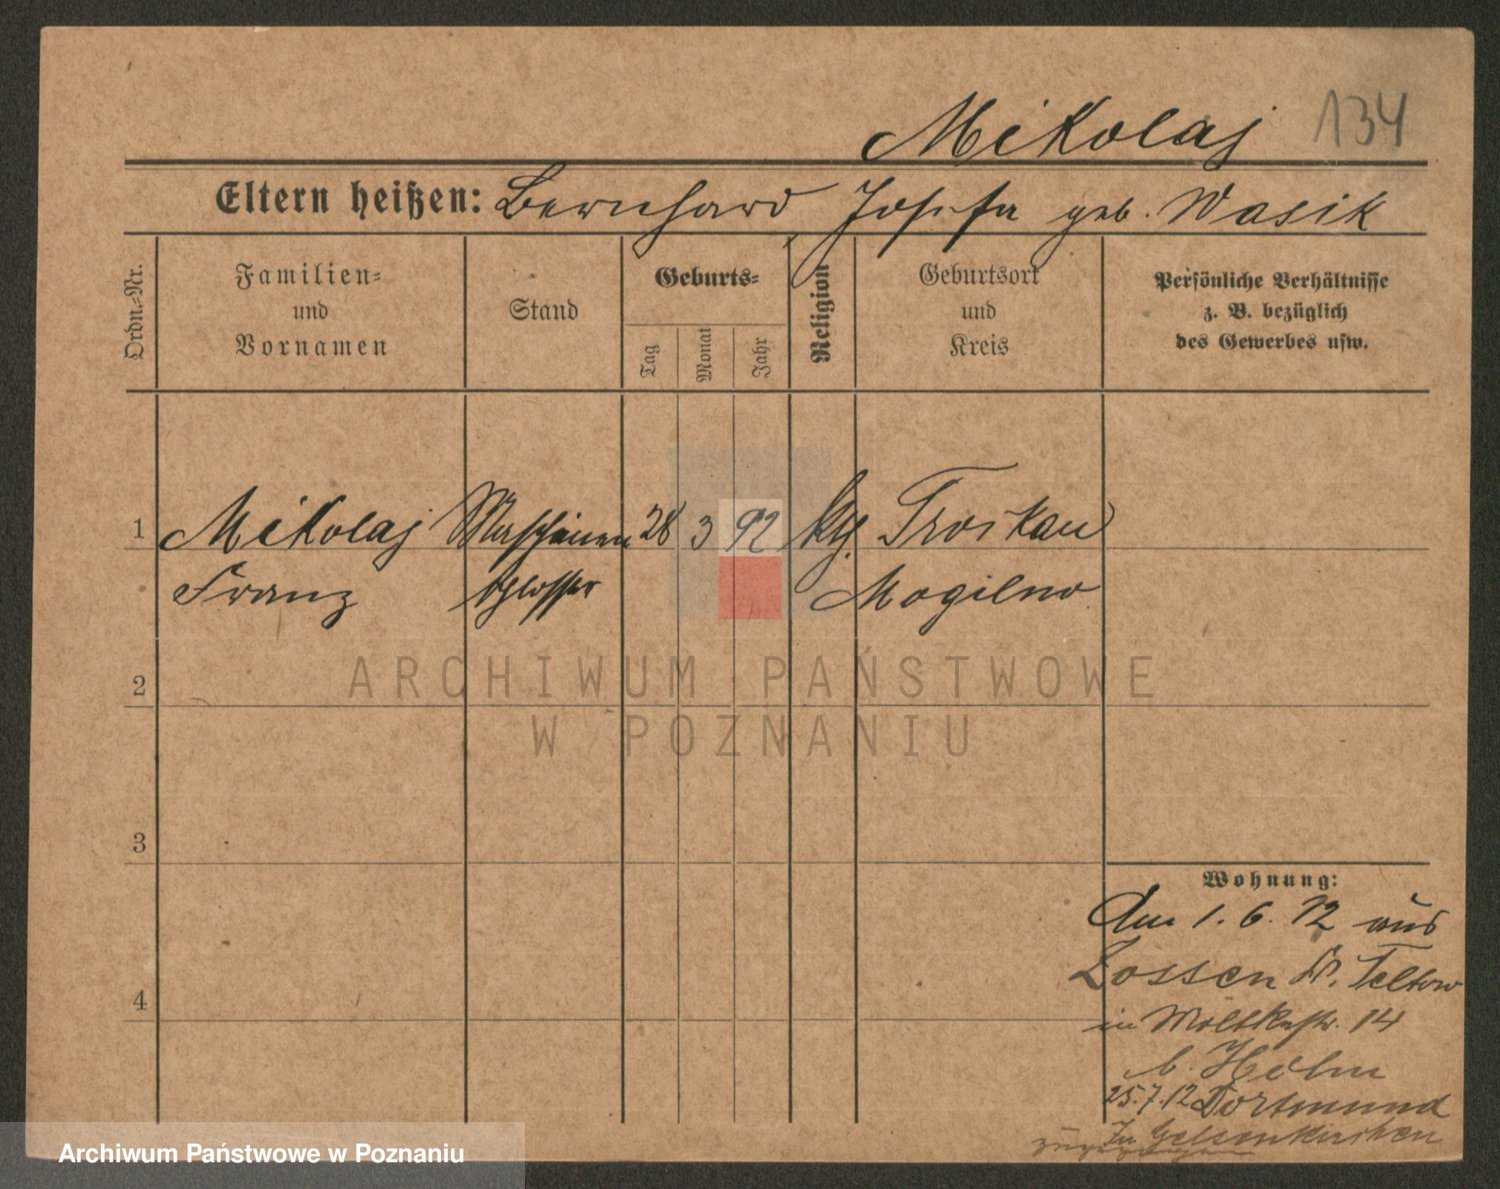 Mikolaj 134
Eltern heißen: Bernhard Josefa geb. Wasik
Ordn.-Nr.
Familien-
und
Vornamen
Stand
Geburts-
Tag
Monat
Jahr
Religion
Geburtsort
und
Kreis
Persönliche Verhältnisse
z. B. bezüglich
des Gewerbes usw.
1 Mikolaj Maschinen 28 3 92 ktg. Troskau
Franz schlosser Mogilno
ARCHIWUM PAŃSTWOWE
2
W POZNANIU
3
Wohnung:
Am 1. 6. 12 aus
Zossen Kr. Teltow
4
in Moltkestr. 14
b. Holm
25.7.12 Dortmund
In Gelsenkirchen
zugezogen
Archiwum Państwowe w Poznaniu